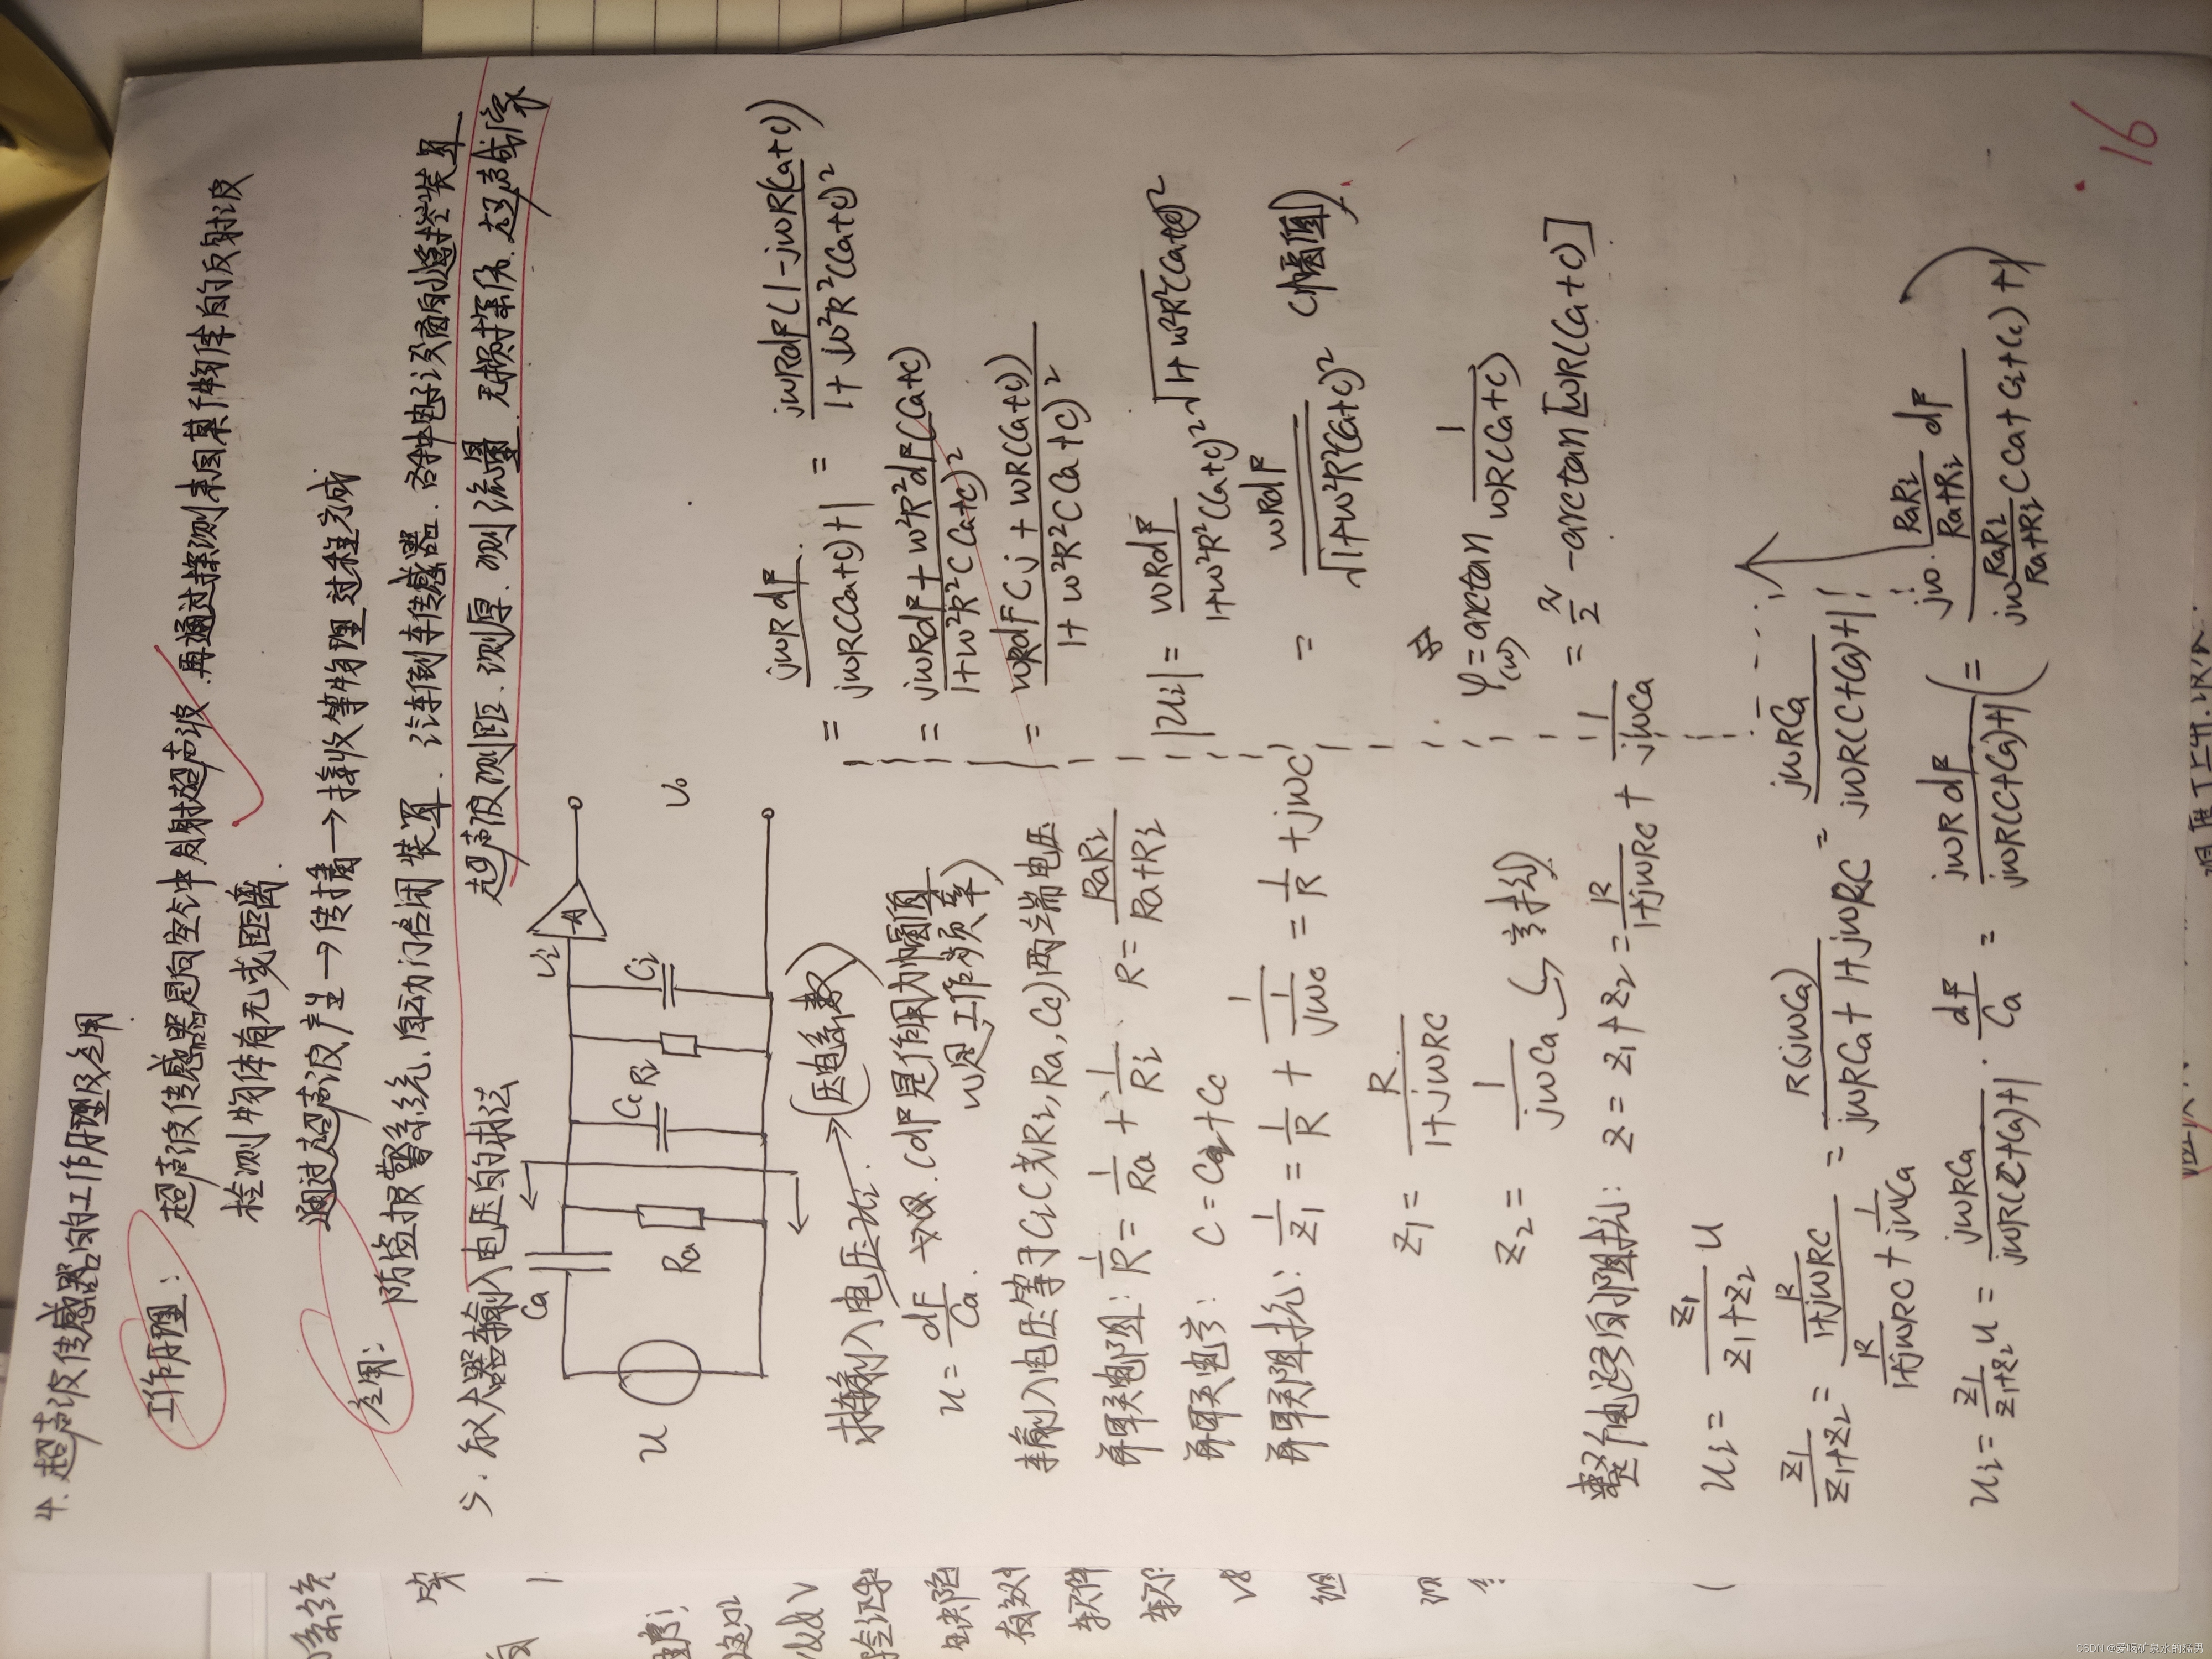 4. 超声波传感器的工作原理及应用
工作原理:
超声波传感器是向空气中发射超声波,再通过探测来自某物体的反射波
检测物体有无或距离.
通过超声波产生→传播→接收等物理过程完成
应用:
防盗报警系统、自动门启闭装置、汽车倒车传感器、各种电子设备的遥控装置
超声波测距、测厚、测流量、无损探伤、超声成像
5. 放大器输入电压的求法
Ca
Ui
A
Cc
Ri
Ci
Ra
U
U₀
求输入电压Ui. → (压电系数)
u = dF/Ca . (dF是作用力幅值
w是工作频率)
输入电压等于Ci(Ri, Ra, Cc)两端电压
并联电阻: 1/R = 1/Ra + 1/Ri . R = RaRi/(Ra+Ri)
并联电容: C = Ci + Cc
并联阻抗: 1/Z₁ = 1/R + 1/(1/jwc) = 1/R + jwC
Z₁ = R/(1+jwRC
Z₂ = 1/jwCa (容抗)
整个电路的阻抗: Z = Z₁+Z₂ = R/(1+jwRC) + 1/jwCa
Ui = Z₁/(Z₁+Z₂) U
Z₁/(Z₁+Z₂) = (R/(1+jwRC))/(R/(1+jwRC) + 1/jwCa) = R(jwCa)/(jwRCa + 1+jwRC) = jwRCa/(jwR(C+Ca)+1)
Ui = Z₁/(Z₁+Z₂) u = jwRCa/(jwR(C+Ca)+1) · dF/Ca = jwRdF/(jwR(C+Ca)+1) = (jw·RaRi/(Ra+Ri) dF)/(jw RaRi/(Ra+Ri) (Ca+Ci+Cc)+1)
= jwRdF/(jwR(Ca+C)+1) = jwRdF(1-jwR(Ca+C))/(1+w²R²(Ca+C)²
= (jwRdF + w²R²dF(Ca+C))/(1+w²R²(Ca+C)²
= wRdF(j + wR(Ca+C))/(1+w²R²(Ca+C)²
|Ui| = wRdF/(1+w²R²(Ca+C)²) √(1+w²R²(Ca+C)²
= wRdF/√(1+w²R²(Ca+C)² (幅值)
φ(w) = arctan 1/(wR(Ca+C)
= π/2 - arctan[wR(Ca+C)]
16
CSDN @爱喝矿泉水的猛男